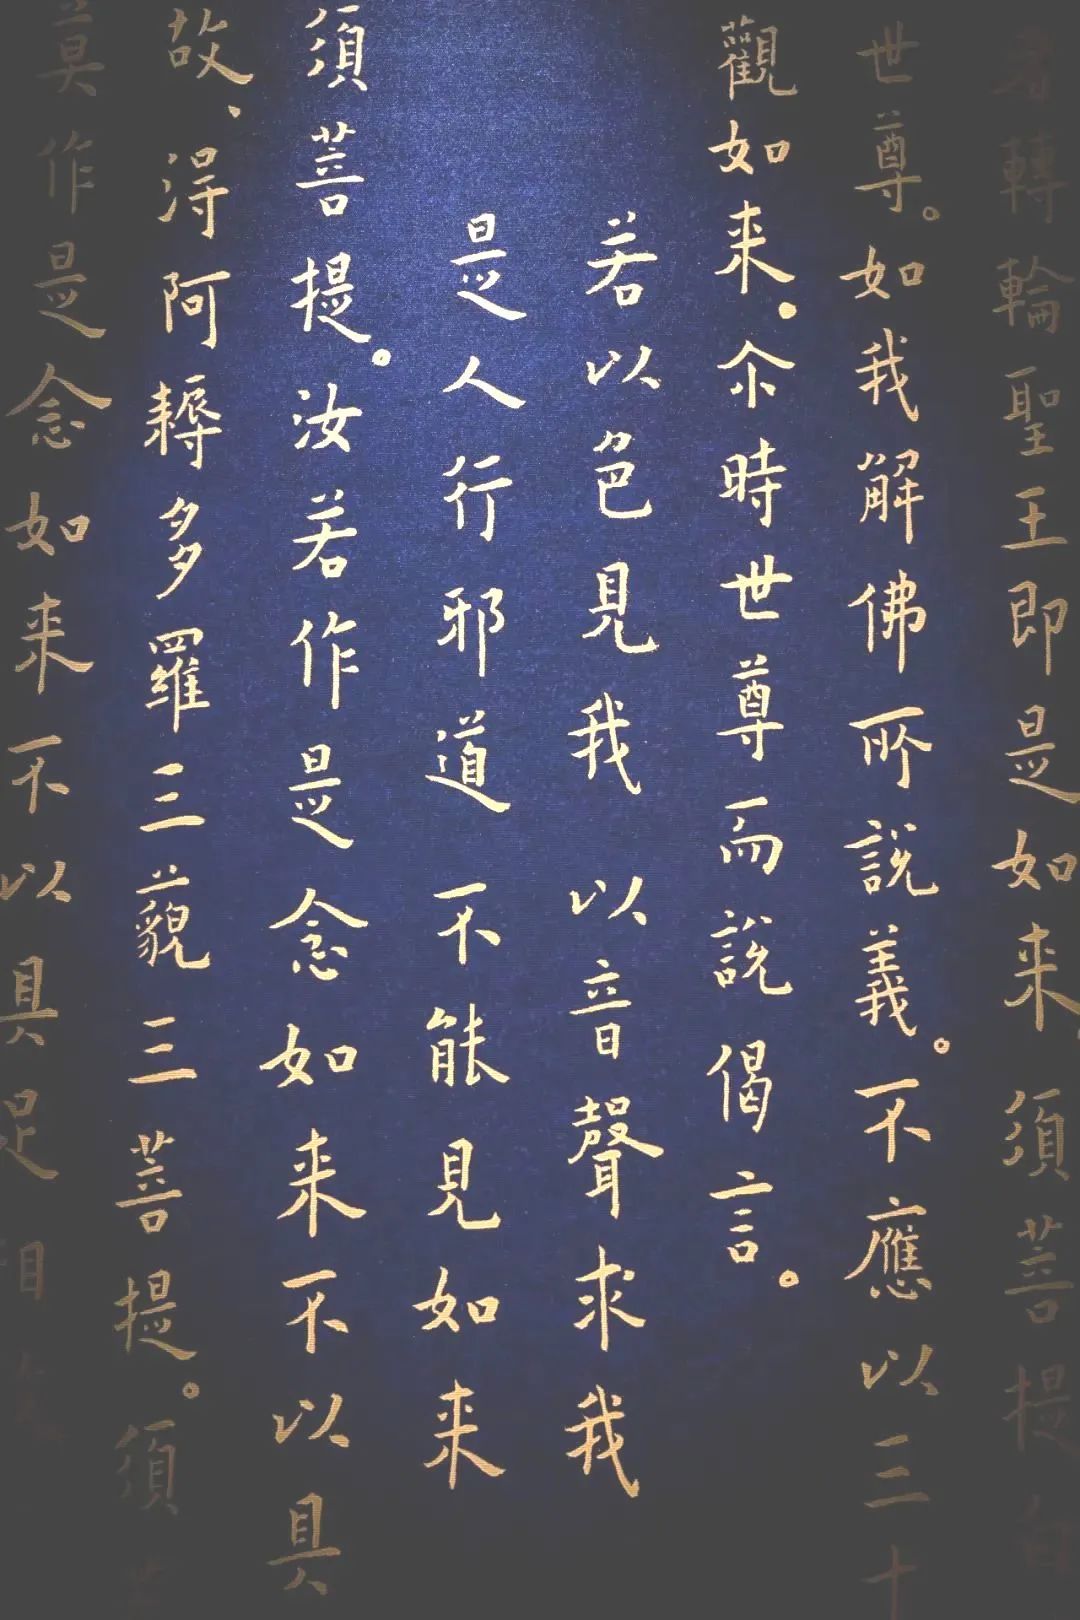 者轉輪聖王即是如来須菩提白
世尊。如我解佛所說義。不應以三十
觀如来.尒時世尊而說偈言。
若以色見我 以音聲求我
是人行邪道 不能見如来
須菩提。汝若作是念如来不以具
故、淂阿耨多羅三藐三菩提。須菩
莫作是念如来不以具足相